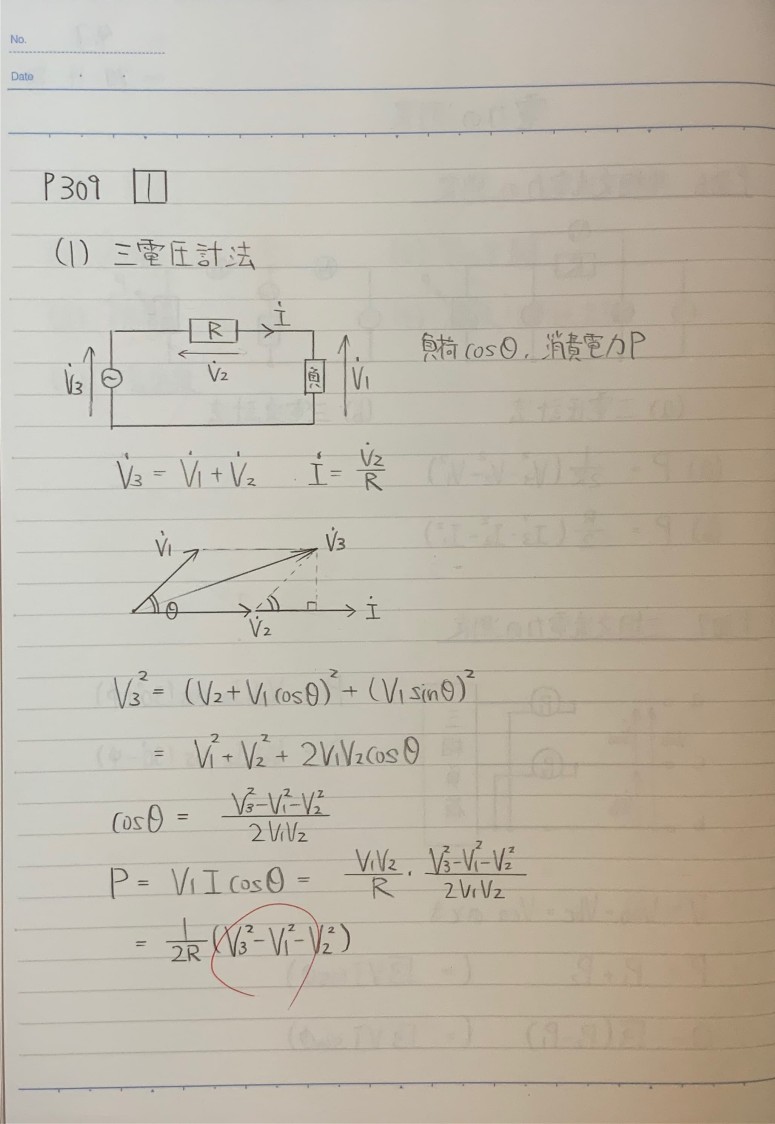 No.
Date
P309 1
(1) 三電圧計法
R İ
V̇3 V̇2 負 V̇1
負荷cosθ, 消費電力P
V̇3 = V̇1 + V̇2 İ = V̇2/R
V̇1 V̇3
θ V̇2 İ
V3² = (V2 + V1cosθ)² + (V1sinθ)²
= V1² + V2² + 2V1V2cosθ
cosθ = (V3²-V1²-V2²)/(2V1V2)
P = V1 I cosθ = V1V2/R · (V3²-V1²-V2²)/(2V1V2)
= 1/2R (V3²-V1²-V2²)